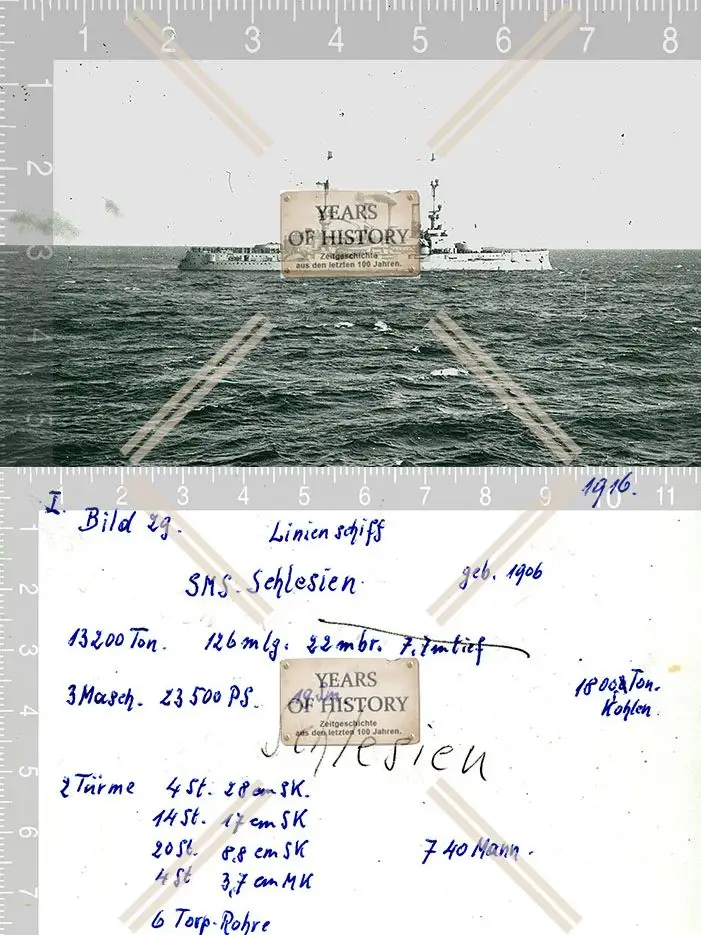 1 2 3 4 5 6 7 8
1
2
3
4
5
YEARS
OF HISTORY
Zeitgeschichte
aus den letzten 100 Jahren.
1 2 3 4 5 6 7 8 9 10 11
1916.
I.
Bild 29. Linienschiff
SMS. Schlesien. geb. 1906
13200 Ton. 126 mlg. 22 mbr. 7,7 m tief
3 Masch. 23500 PS. 19 Sm
1800 Ton.
Kohlen.
YEARS
OF HISTORY
Zeitgeschichte
aus den letzten 100 Jahren.
Schlesien
2 Türme 4 St. 28 cm SK.
14 St. 17 cm SK
20 St. 8,8 cm SK 740 Mann.
4 St 3,7 cm MK
6 Torp-Rohre
1
2
3
4
5
6
7